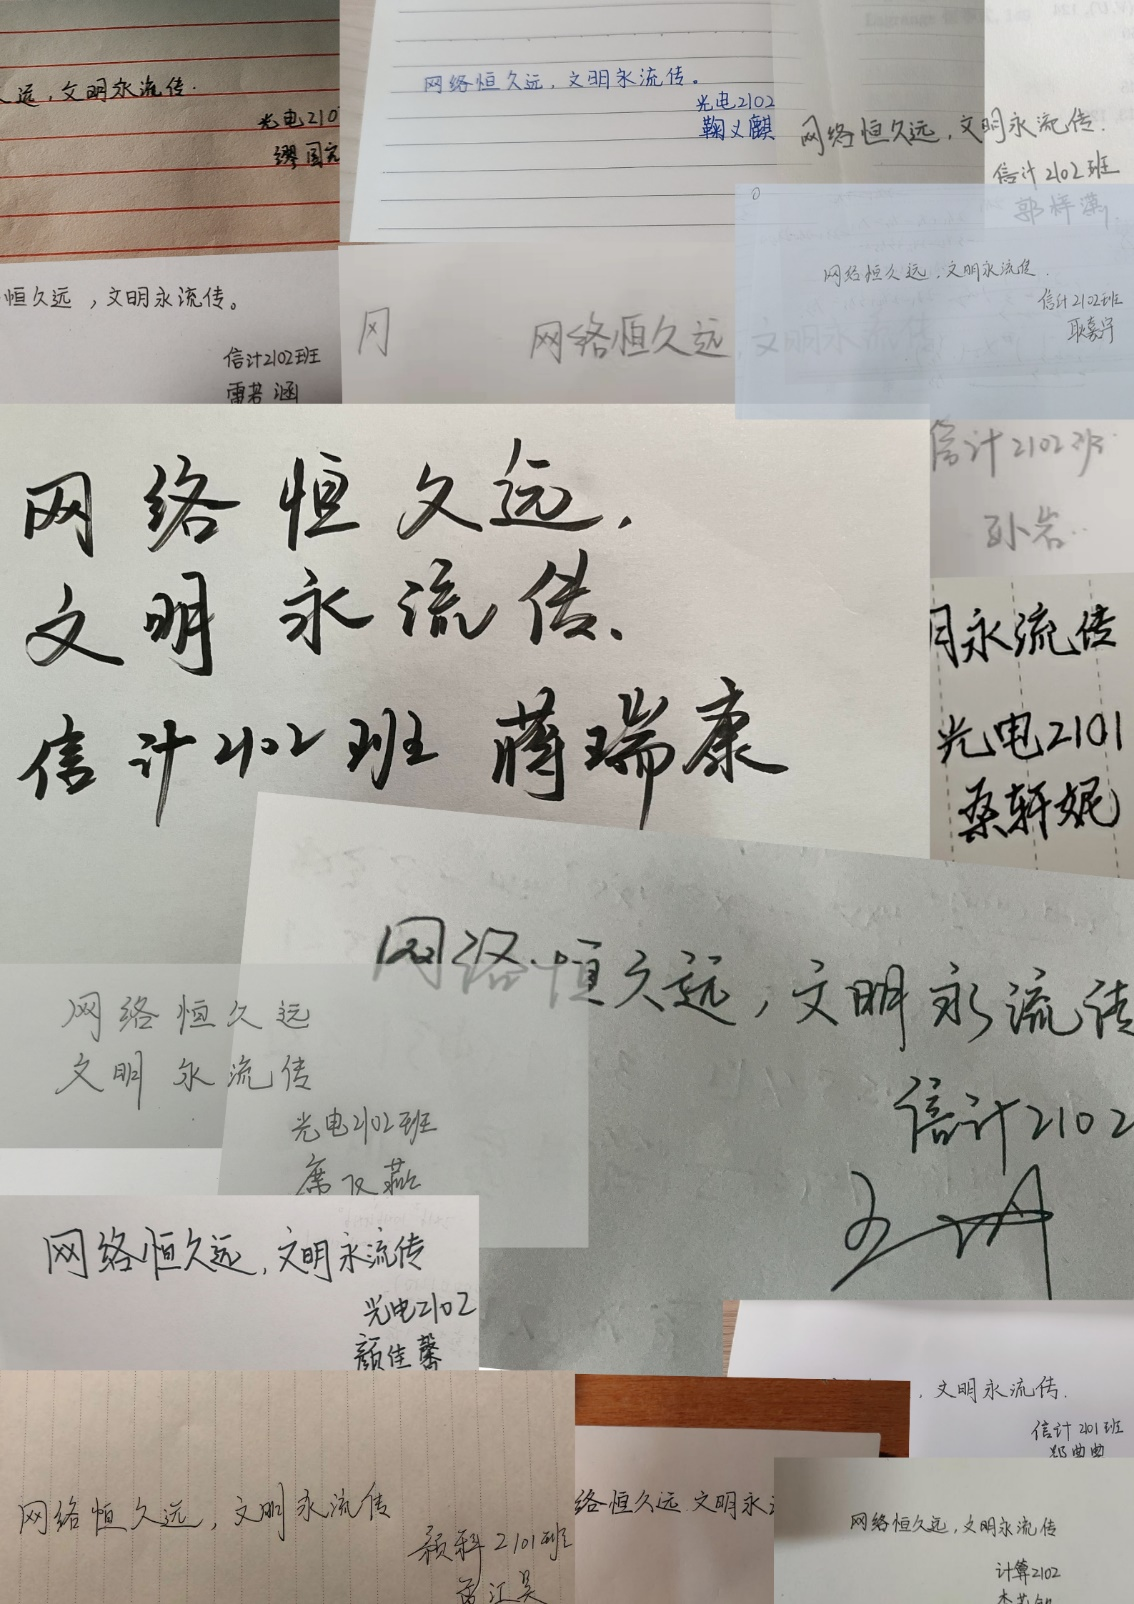 远，文明永流传.
光电210
缪国
网络恒久远，文明永流传。
光电2102
鞠义麒
网络恒久远，文明永流传.
信计2102班
郭梓
恒久远，文明永流传。
信计2102班
雷若涵
网
网络恒久远，文明永流传
网络恒久远，文明永流传.
信计2102班
耿嘉宇
网络恒久远，
文明永流传、
信计2102班 蒋瑞康
信计2102班
孙岩
永流传
光电2101
桑轩妮
网络恒久远，文明永流传
信计2102
网络恒久远
文明永流传
光电2102班
席汉燕
网络恒久远，文明永流传
光电2102
颜佳馨
，文明永流传.
信计2101班
郑曲曲
网络恒久远，文明永流传
2101班
江昊
络恒久远 文明永
网络恒久远，文明永流传
计算2102